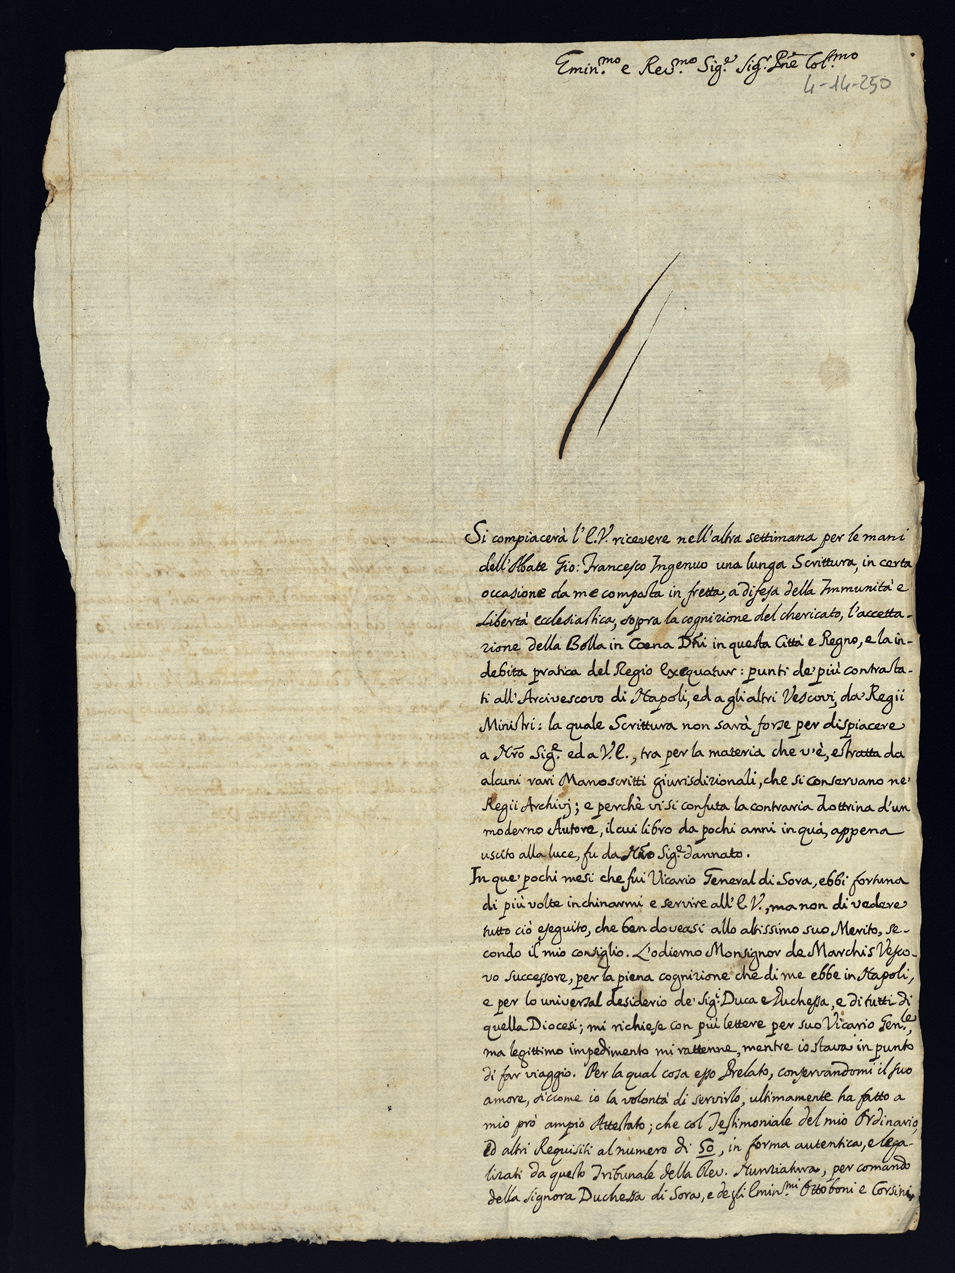 Emin.mo e Rev.mo Sig.e Sig.r Pne Col.mo
4-14-250
Si compiacerà l'E.V. ricevere nell'altra settimana per le mani
dell'Abate Gio: Francesco Ingenuo una lunga Scrittura, in certa
occasione da me composta in fretta, a difesa della Immunità e
Libertà ecclesiastica, sopra la cognizione del chericato, l'accetta-
zione della Bolla in Coena Dñi in questa Città e Regno, e la in-
debita pratica del Regio Exequatur: punti de' più contrasta-
ti all'Arcivescovo di Napoli, ed a gli altri Vescovi, da Regii
Ministri: la quale Scrittura non sarà forse per dispiacere
a Nr̃o Sig.e ed a V.E., tra per la materia che v'è, estratta da
alcuni rari Manoscritti giurisdizionali, che si conservano ne'
Regii Archivj; e perchè vi si confuta la contraria dottrina d'un
moderno Autore, il cui libro da pochi anni in quà, appena
uscito alla luce, fu da Nr̃o Sig.e dannato.
In que' pochi mesi che fui Vicario General di Sora, ebbi fortuna
di più volte inchinarmi e servire all'E.V., ma non di vedere
tutto ciò eseguito, che ben doveasi allo altissimo suo Merito, se-
condo il mio consiglio. L'odierno Monsignor de Marchis Vesco-
vo successore, per la piena cognizione che di me ebbe in Napoli,
e per lo universal desiderio de' Sig.i Duca e Duchessa, e di tutti di
quella Diocesi; mi richiese con più lettere per suo Vicario Gen.le,
ma legittimo impedimento mi rattenne, mentre io stava in punto
di far viaggio. Per la qual cosa esso Prelato, conservandomi il suo
amore, siccome io la volontà di servirlo, ultimamente ha fatto a
mio prò ampio Attestato; che col Testimoniale del mio Ordinario,
ed altri Requisiti al numero di 50, in forma autentica, e lega-
lizati da questo Tribunale della Rev. Nunziatura, per comando
della Signora Duchessa di Sora, e degli Emin.mi Ottoboni e Corsini,